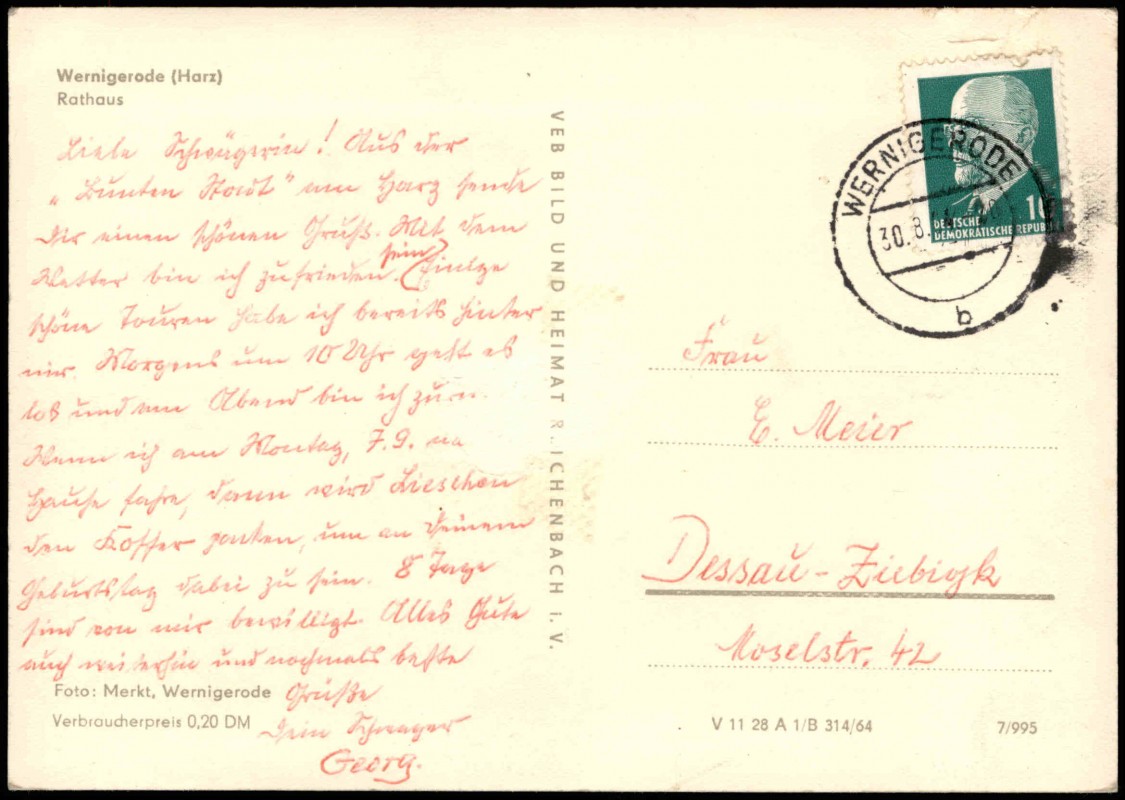 Wernigerode (Harz)
Rathaus
Liebe Schwägerin! Aus der
„Bunten Stadt" am Harz sende
Dir einen schönen Gruß. Mit dem
Wetter bin ich zufrieden. Einige
schöne Touren habe ich bereits hinter
mir. Morgens um 10 Uhr geht es
los und am Abend bin ich
Wenn ich am Montag, 7.9. na
Hause fahre, dann wird Lieschen
den Koffer packen, um an Deinem
Geburtstag dabei zu sein. 8 Tage
sind von mir bewilligt. Alles Gute
auch weiterhin und nochmals beste
Grüße
Dein Schwager
Georg.
Foto: Merkt, Wernigerode
Verbraucherpreis 0,20 DM
VEB BILD UND HEIMAT R.ICHENBACH i. V.
WERNIGERODE
30.8.
b
10
DEUTSCHE
DEMOKRATISCHE REPUBL
Frau
E. Meier
Dessau-Ziebigk
Moselstr. 42
V 11 28 A 1/B 314/64
7/995